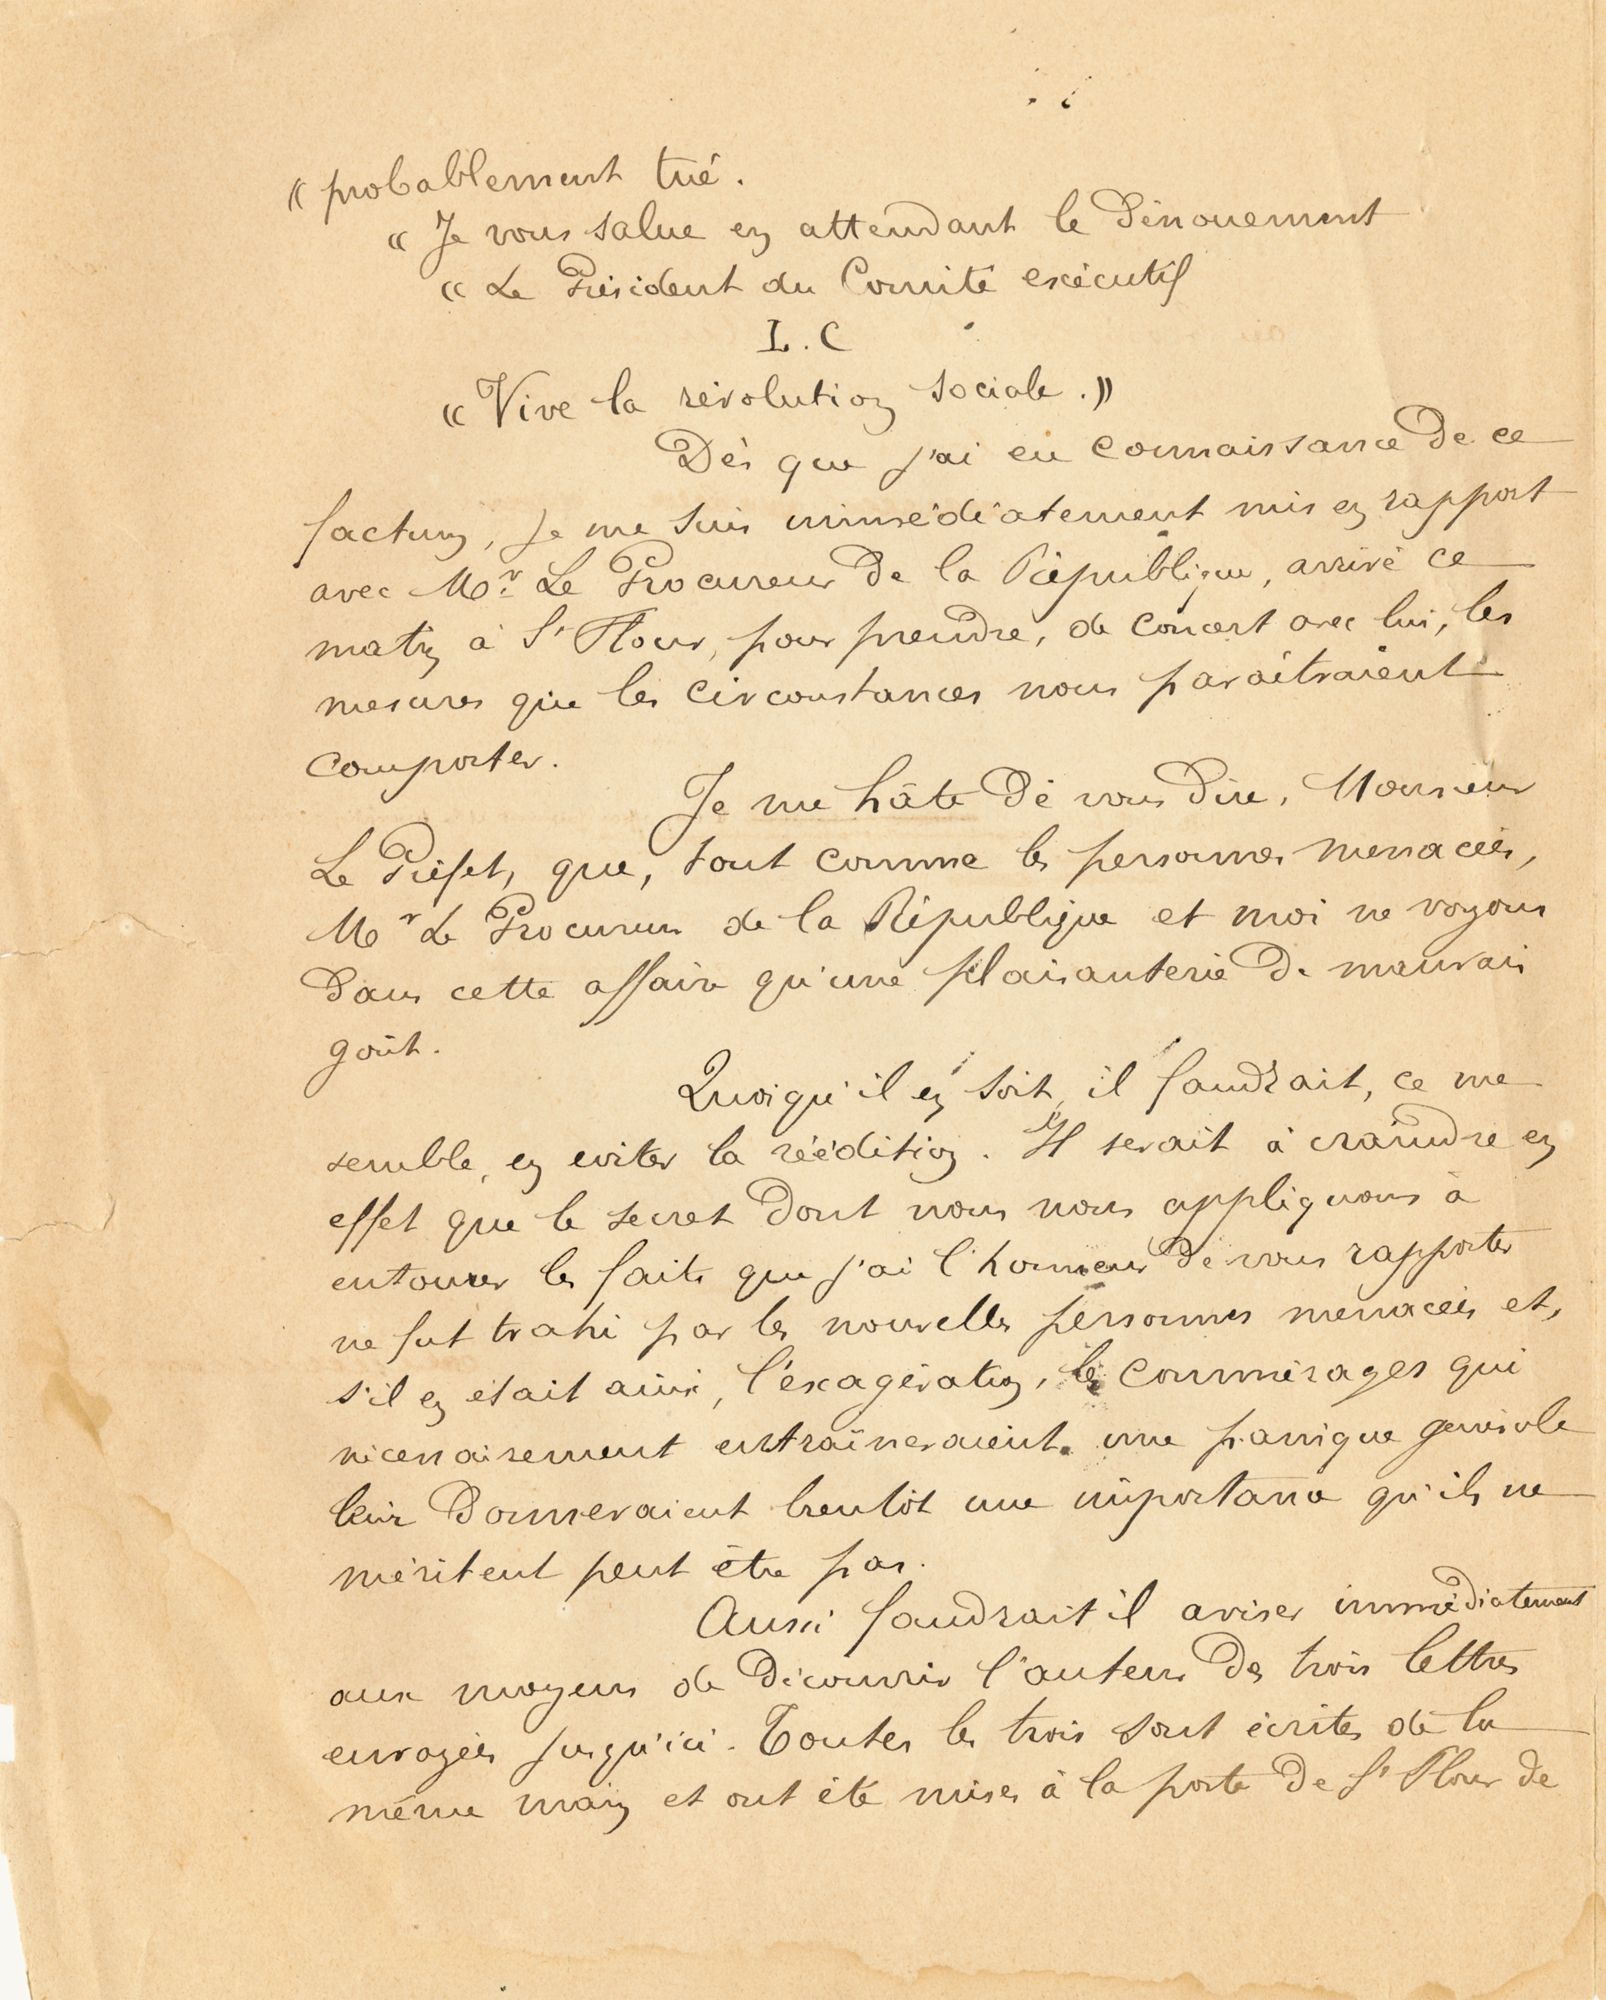 « probablement tué.
« Je vous salue en attendant le dénouement
« Le Président du Comité exécutif
L. C
« Vive la révolution sociale. »
Dès que j'ai eu connaissance de ce
factum, je me suis immédiatement mis en rapport
avec Mr. Le Procureur de la République, arrivé ce
matin à St Flour, pour prendre, de concert avec lui, les
mesures que les circonstances nous paraîtraient
comporter.
Je me hâte de vous dire, Monsieur
Le Préfet, que, tout comme les personnes menacées,
Mr Le Procureur de la République et moi ne voyons
dans cette affaire qu'une plaisanterie de mauvais
goût.
Quoiqu'il en soit, il faudrait, ce me
semble, en eviter la réédition. Il serait à craindre en
effet que le secret dont nous nous appliquons à
entourer les faits que j'ai l'honneur de vous rapporter
ne fut trahi par les nouvelles personnes menacées et,
s'il en était ainsi, l'éxagération, les commérages qui
nécessairement entraîneraient une panique générale
leur donneraient bientôt une importance qu'ils ne
méritent peut être pas.
Aussi faudrait il aviser immédiatement
aux moyens de découvrir l'auteur des trois lettres
envoyées jusqu'ici. Toutes les trois sont écrites de la
même main et ont été mises à la poste de St Flour de